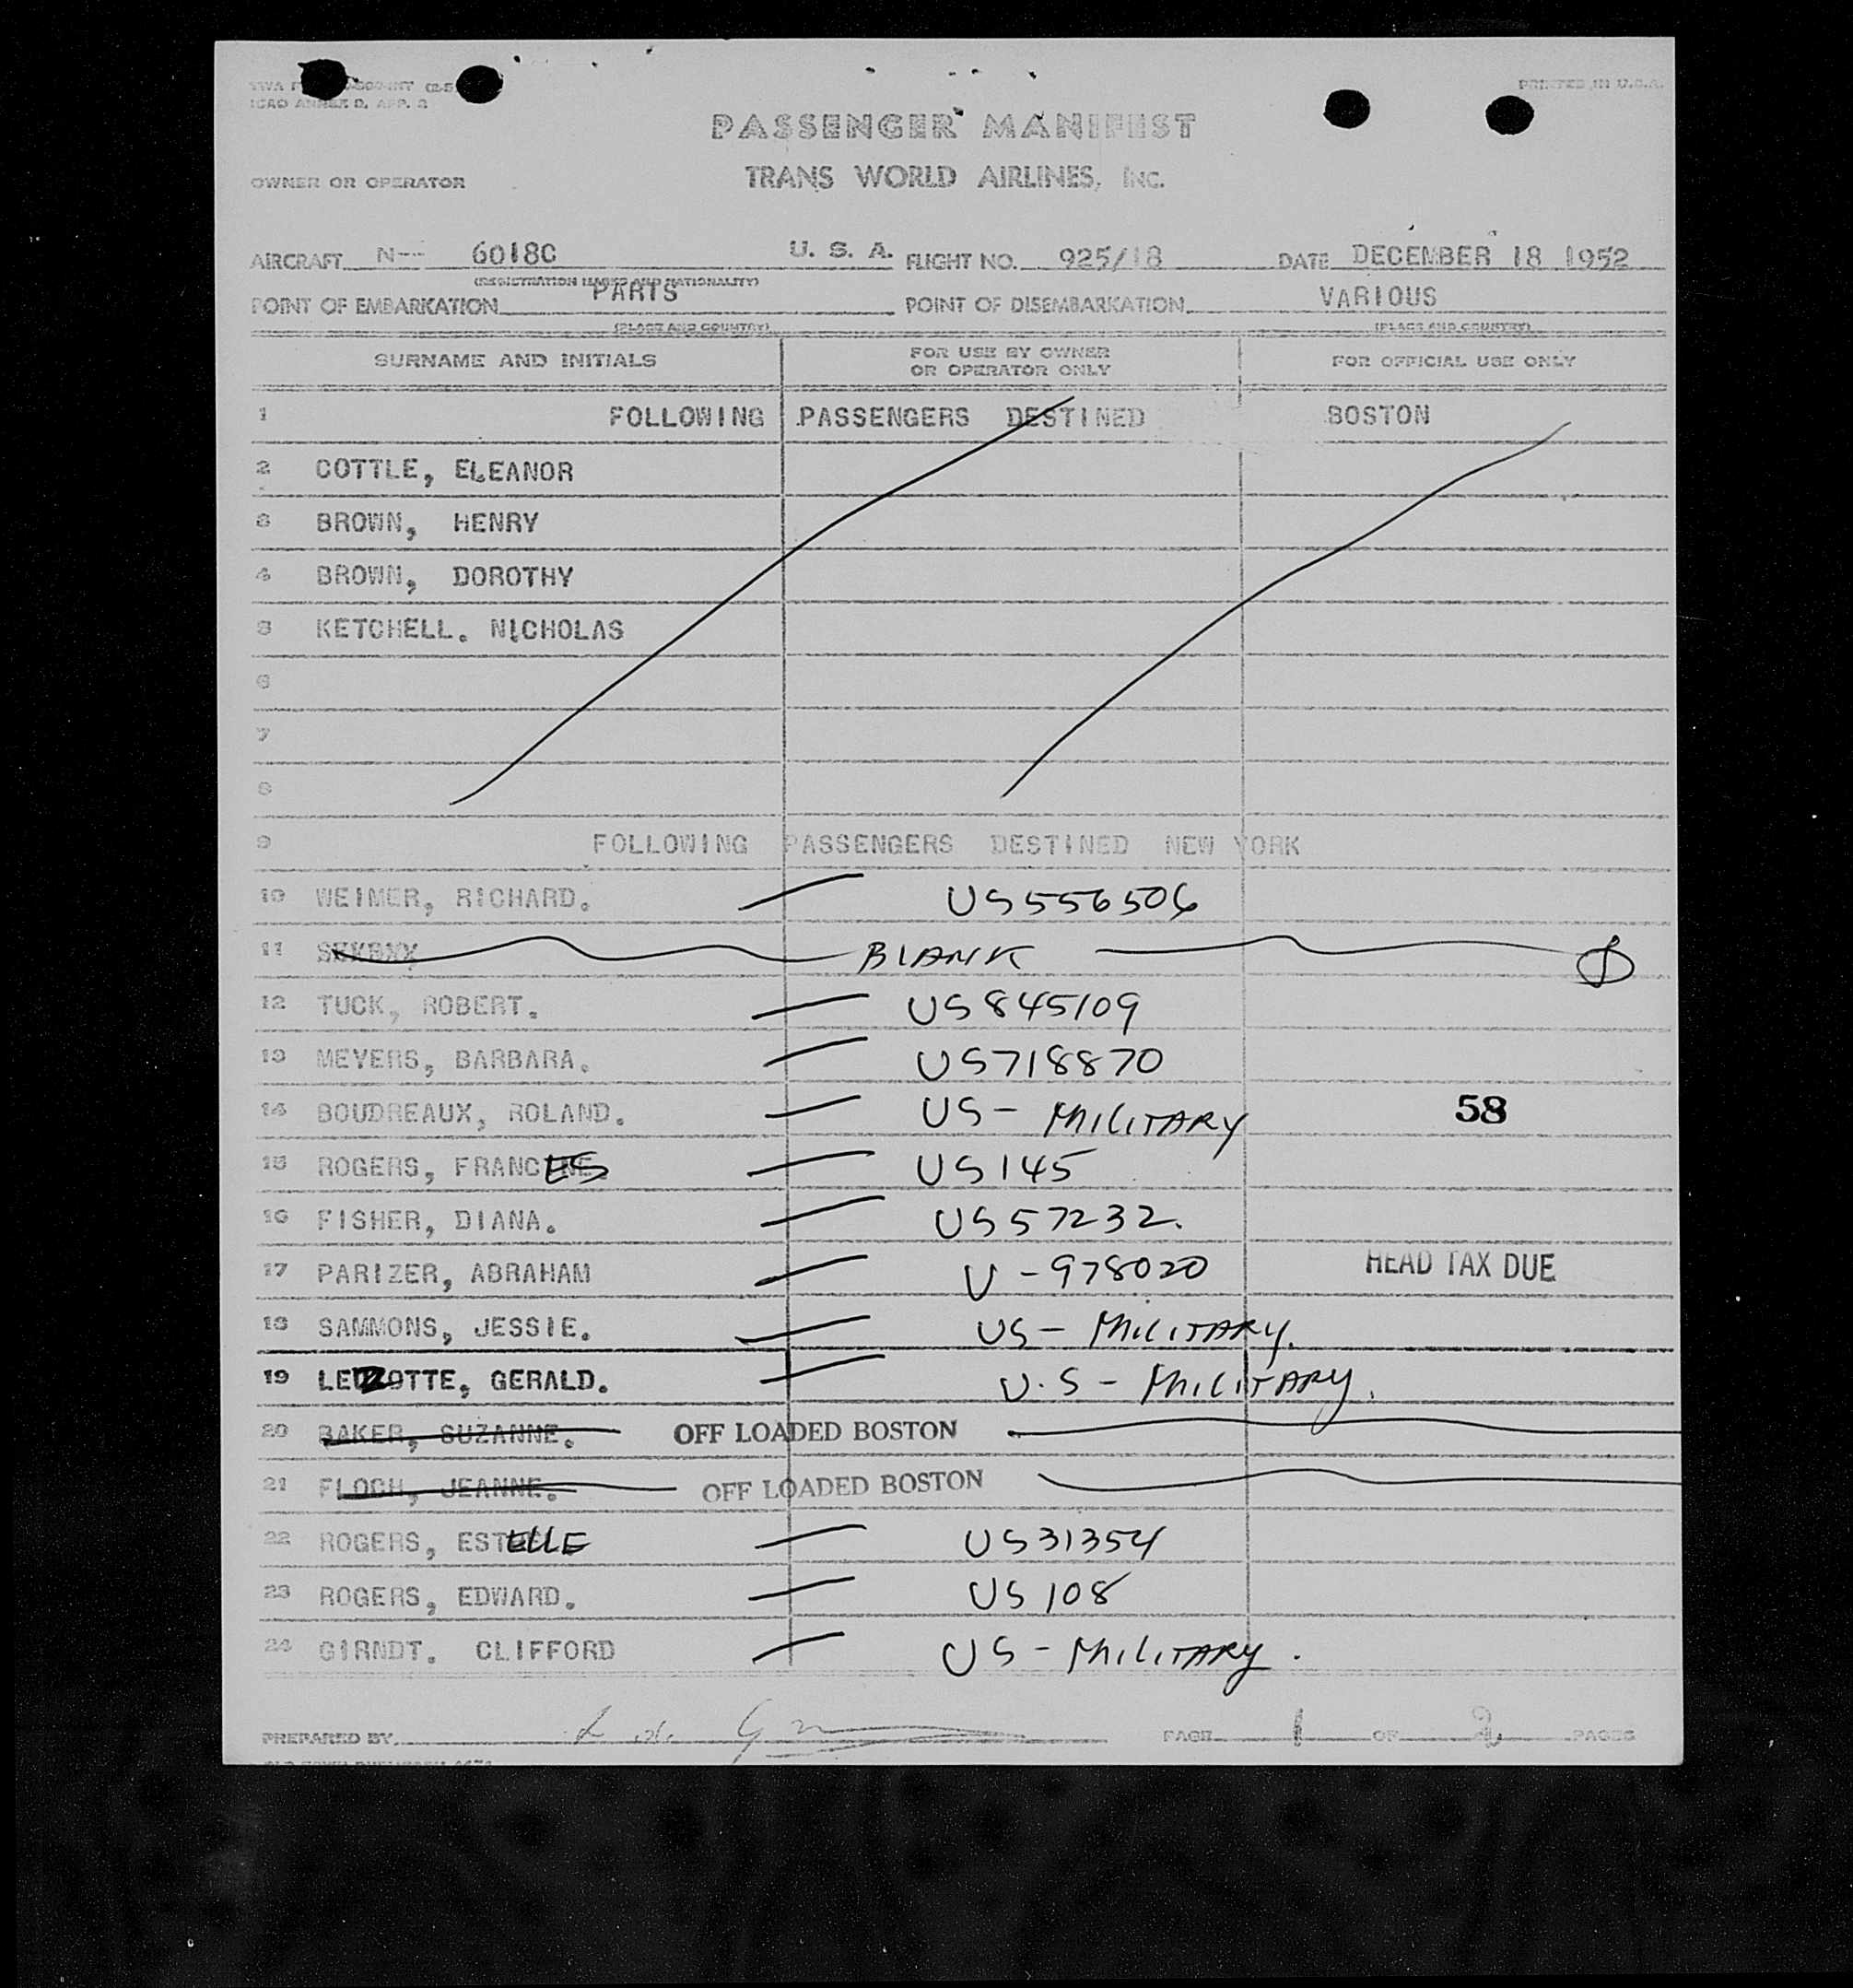 ICAO ANNEX 9, APP. 3
PRINTED IN U.S.A.
PASSENGER MANIFEST
OWNER OR OPERATOR TRANS WORLD AIRLINES, INC.
AIRCRAFT N-- 6018C U. S. A. FLIGHT NO. 925/18 DATE DECEMBER 18 1952
(REGISTRATION MARKS AND NATIONALITY)
POINT OF EMBARKATION PARIS POINT OF DISEMBARKATION VARIOUS
(PLACE AND COUNTRY) (PLACE AND COUNTRY)
SURNAME AND INITIALS FOR USE BY OWNER OR OPERATOR ONLY FOR OFFICIAL USE ONLY
1 FOLLOWING PASSENGERS DESTINED BOSTON
2 COTTLE, ELEANOR
3 BROWN, HENRY
4 BROWN, DOROTHY
5 KETCHELL. NICHOLAS
6
7
8
9 FOLLOWING PASSENGERS DESTINED NEW YORK
10 WEIMER, RICHARD. US556506
11 BLANK
12 TUCK, ROBERT. US845109
13 MEYERS, BARBARA. US718870
14 BOUDREAUX, ROLAND. US- MILITARY 58
15 ROGERS, FRANCES US145
16 FISHER, DIANA. US57232.
17 PARIZER, ABRAHAM U-978020 HEAD TAX DUE
18 SAMMONS, JESSIE. US- MILITARY.
19 LEZOTTE, GERALD. U.S- MILITARY.
20 BAKER, SUZANNE. OFF LOADED BOSTON
21 FLOCH, JEANNE. OFF LOADED BOSTON
22 ROGERS, ESTELLE US31354
23 ROGERS, EDWARD. US108
24 GIRNDT. CLIFFORD US-MILITARY.
PREPARED BY PAGE 1 OF 2 PAGES